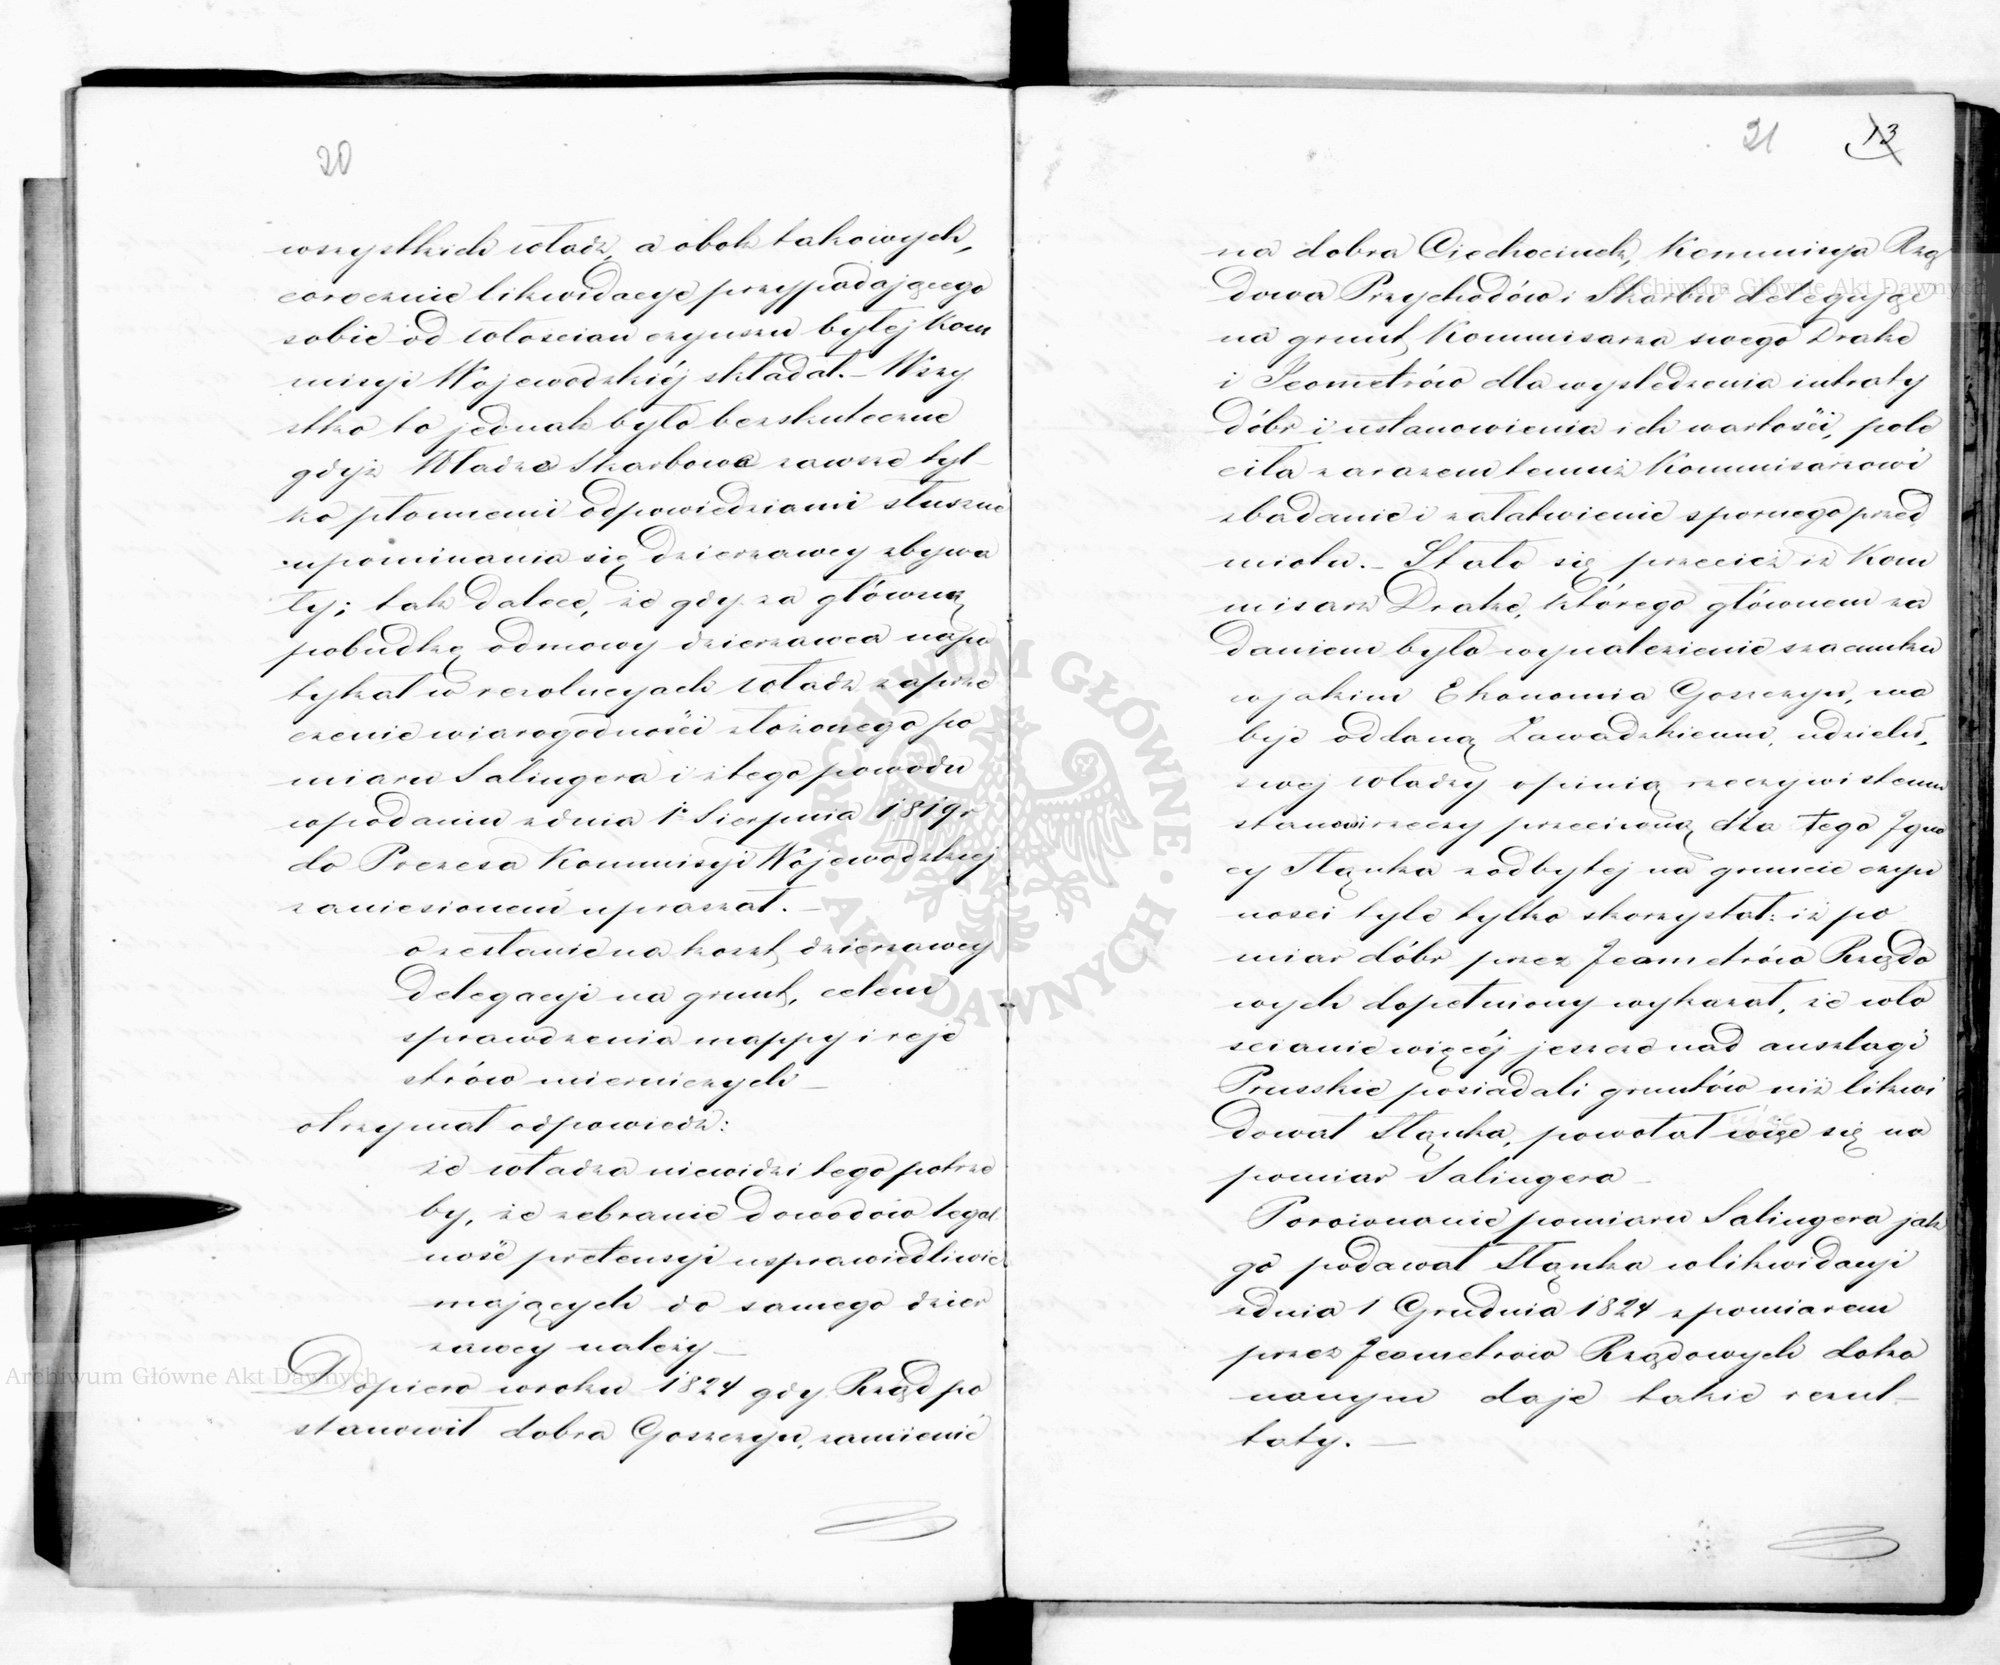 20
wszystkich władz, a obok takowych,
corocznie likwidacye przypadającego
sobie od włoscian czynszu byłej Kom
misyi Wojewodzkiéj składał. – Wszy
stko to jednak było bezskuteczne
gdyż Władze Skarbowe zawsze tyl-
ko płonnemi odpowiedziami słuszne
upominania się dzierzawcy zbywa
ły; tak dalece, że gdy za główną
pobudkę odmowy dzierzawca napo
tykał w rezolucyach władz zaprze
czenie wiarogodności złożonego po
miaru Salingera i z tego powodu
w podaniu zdnia 1o Sierpnia 1819r
do Prezesa Kommisyi Wojewodzkiej
zaniesionem upraszał. –
o zesłanie na koszt dzierzawcy
Delegacyi na grunt, celem
sprawdzenia mappy i reje
strów mierniczych –
otrzymał odpowiedz:
że władza niewidzi tego potrze
by, że zebranie dowodów legal
ność pretensyi usprawiedliwić
mających do samego dzier
zawcy należy –
Dopiero wroku 1824 gdy Rząd po
stanowił dobra Goszczyn, zamienić
21 13
na dobra Ciechocinek, Kommisyja Rzą
dowa Przychodów i Skarbu delegując
na grunt Kommisarza swego Drake
i Jeometrów dla wysledzenia intraty
dóbr i ustanowienia ich wartości, pole
ciła zarazem temuż Kommisarzowi
zbadanie i załatwienie spornego przed
miotu. – Stało się przecież iż Kom
misarz Drake, którego głównem za
daniem było wynalezienie szacunku
w jakim Ekonomia Goszczyn, ma
być oddaną Zawadzkiemu, udzielił
swej władzy opinią rzeczywistemu
stanowi rzeczy przeciwną dla tego Igna
cy Stąnka z odbytej na gruncie czyn
nosci tyle tylko skorzystał: iż po
miar dóbr przez Jeometrów Rządo
wych dopełniony wykazał, że wło
scianie więcéj jeszcze nad anszlagi
Prusskie posiadali gruntów niż likwi
dował Stąnka, powołał więc się na
pomiar Salingera –
Porównanie pomiaru Salingera jak
go podawał Stąnka wlikwidacyi
zdnia 1 Grudnia 1824 z pomiarem
przez Jeometrow Rządowych doko
nanym daje takie rezul-
taty. –
Archiwum Główne Akt Dawnych
Archiwum Główne Akt Dawnych
ARCHIWUM GŁÓWNE AKT DAWNYCH